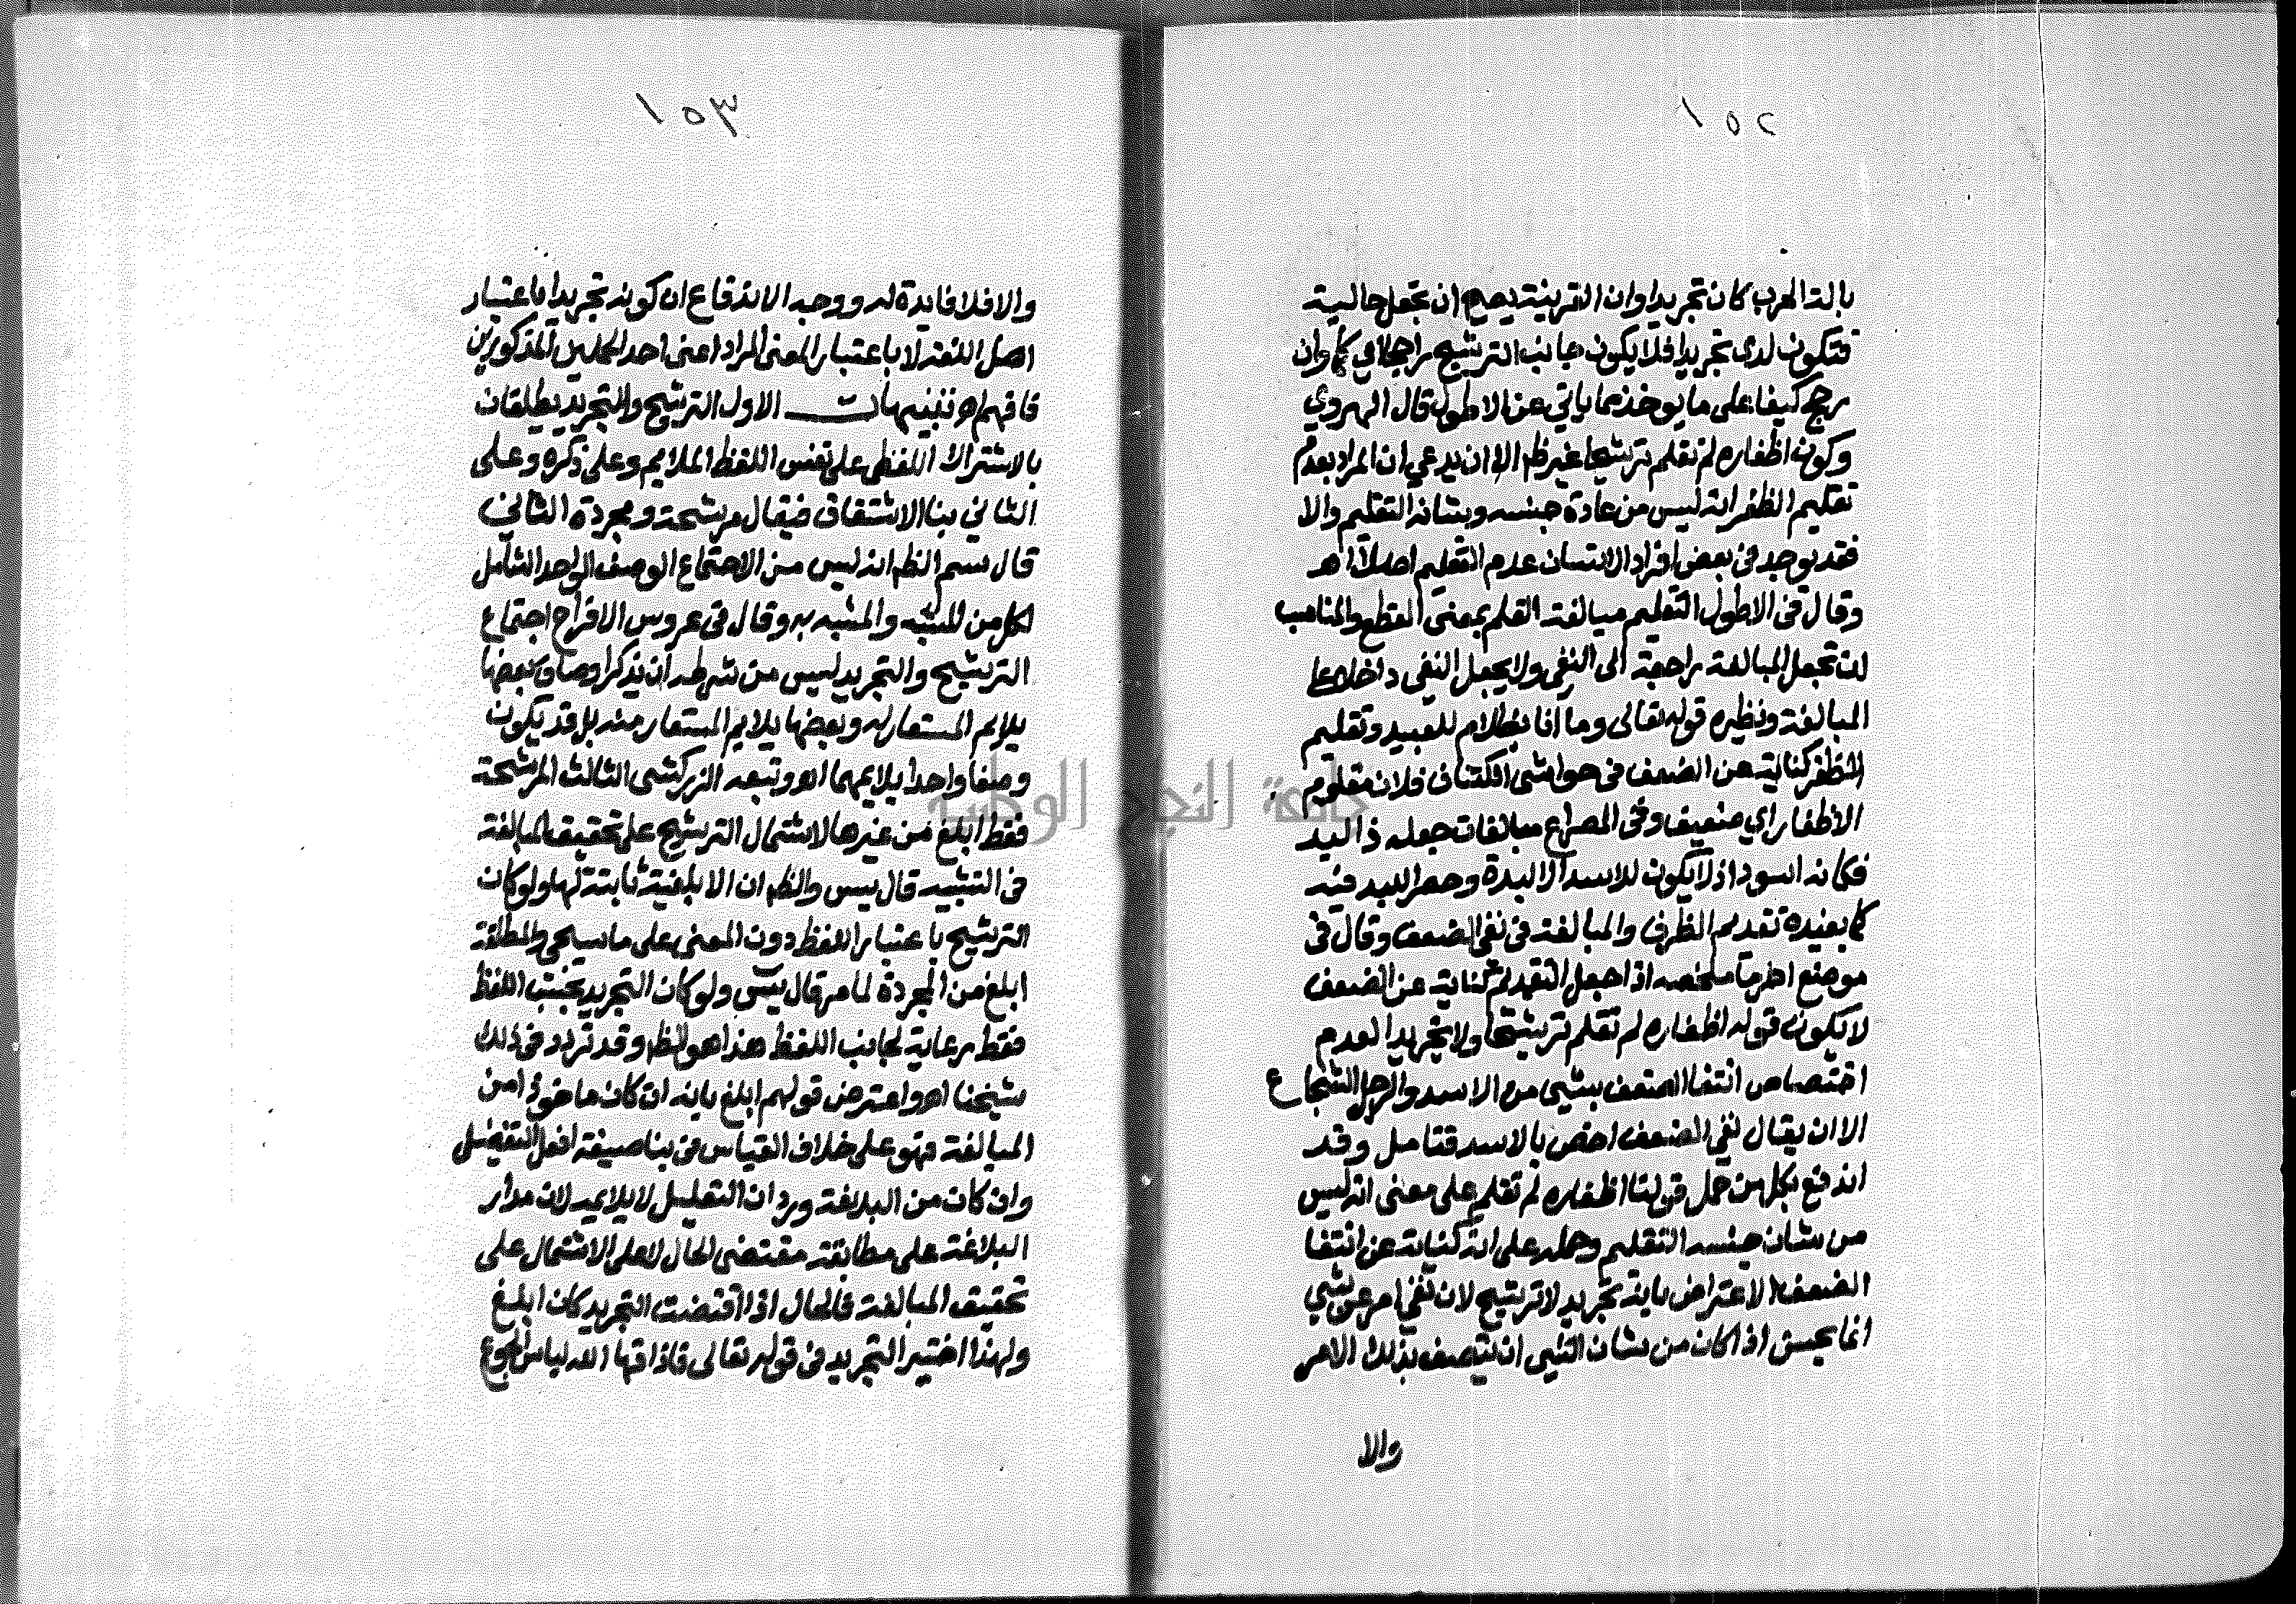 ١٥٢
بالة الحرب كان تجريدا وان القرينة يصح ان تجعل حالية
فتكون لدى تجريدا فلا يكون جانب الترشيح راجحا في كم وان
رجح كيفا على ما يوخذ مما ياتي عن الاطول قال الهروي
وكون اظفاره لم تقلم ترشيحا غير ظم الا ان يدعي ان المراد بعدم
تقليم الظفر انه ليس من عادة جنسه وبشانه التقليم والا
فقد يوجد في بعض افراد الانسان عدم التقليم اصلا اهـ
وقال في الاطول التقليم مبالغة القلم بمعنى القطع والمناسب
ان تجعل المبالغة راجعة الى النفي ولا يجعل النفي داخلا على
المبالغة ونظيره قوله تعالى وما انا بظلام للعبيد وتقليم
الظفر كناية عن الضعف في حواشي الكشاف فلان مقلوم
الاظفار اي ضعيف وفي المصراع مبالغات جعله ذا لبد
فكانه اسود اذ لا يكون للاسد الا لبدة وحصر اللبد فيه
كما يفيده تقديم الظرف والمبالغة في نفي الضعف وقال في
موضع اخر ما ملخصه اذا جعل التقديم كناية عن الضعف
لا يكون قوله اظفاره لم تقلم ترشيحا ولا تجريدا لعدم
اختصاص انتفا الضعف بشي من الاسد والرجل الشجاع
الا ان يقال نفي الضعف اخص بالاسد فتامل وقد
اندفع بكل من حمل قولنا اظفاره لم تقلم على معنى انه ليس
من شان جنسه التقليم وحمله على انه كناية عن انتفا
الضعف الاعتراض بانه تجريد لا ترشيح لان نفي امر عن شي
انما يحسن اذا كان من شان الشي ان يتصف بذلك الامر
والا
١٥٣
والا فلا فايدة له ووجه الاندفاع ان كونه تجريدا باعتبار
اصل اللغة لا باعتبار المعنى المراد اعني احد المحملين المذكورين
فافهم اهـ تنبيهات الاول الترشيح والتجريد يطلقان
بالاشتراك اللفظي على نفس اللفظ الملايم وعلى ذكره وعلى
الثاني بنا الاشتقاق فيقال مرشحة ومجردة الثاني
قال سم الظم انه ليس من الاجتماع الوصف الواحد الشامل
لكل من المشبه والمشبه به وقال في عروس الافراح اجتماع
الترشيح والتجريد ليس من شرطه ان يذكر اوصاف بعضها
يلايم المستعار له وبعضها يلايم المستعار منه بل قد يكون
وصفا واحدا يلايمهما اهـ وتبعه الزركشي الثالث المرشحة
فقط ابلغ من غيرها لاشتمال الترشيح على تحقيق المبالغة
في التشبيه قال يس والظم ان الابلغية ثابتة لها ولو كان
الترشيح باعتبار اللفظ دون المعنى على ما سيجي والمطلقة
ابلغ من المجردة لما مر قال يس ولو كان التجريد بحسب اللفظ
فقط رعاية لجانب اللفظ هذا هو الظم وقد تردد في ذلك
شيخنا اهـ واعترض قولهم ابلغ بانه ان كان ماخوذا من
المبالغة فهو على خلاف القياس في بنا صيغة افعل التفضيل
وان كان من البلاغة ورد ان التعليل لا يلايمه لان مدار
البلاغة على مطابقة مقتضى الحال لا على الاشتمال على
تحقيق المبالغة فالحال اذا اقتضت التجريد كان ابلغ
ولهذا اختير التجريد في قوله تعالى فاذاقها الله لباس الجوع
جامعة النجاح الوطنية